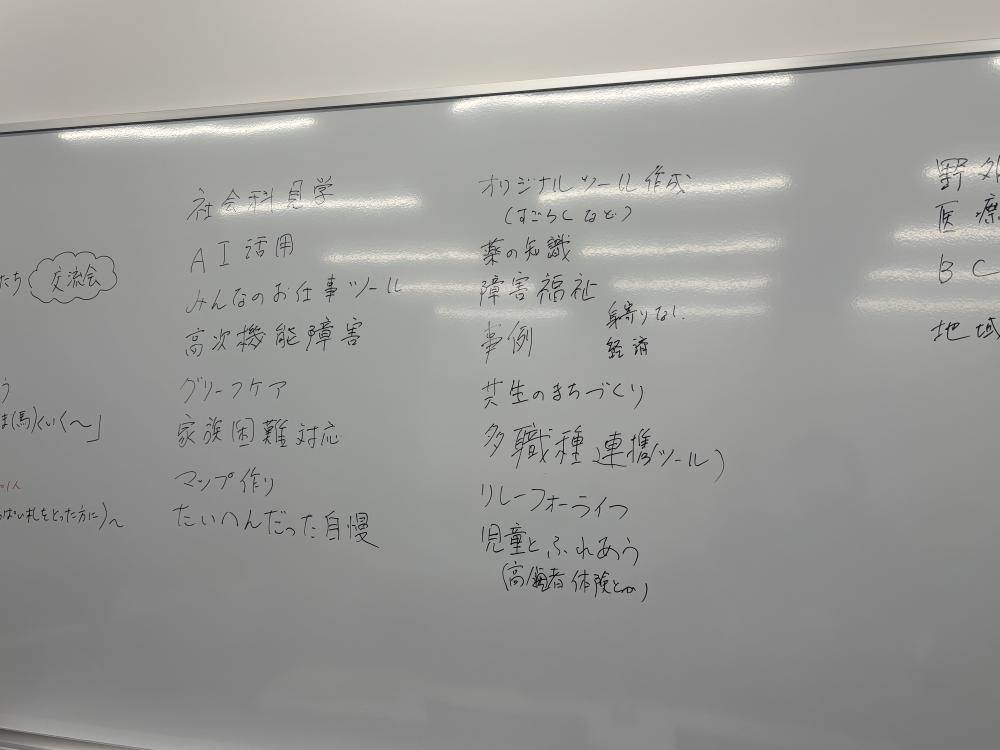 たち 交流会
う
ま(馬)くいく〜」
01人
っぱい札をとった方に)〜
社会科見学
AI活用
みんなのお仕事ツール
高次機能障害
グリーフケア
家族困難対応
マップ作り
たいへんだった自慢
オリジナルツール作成
(すごろくなど)
薬の知識
障害福祉
事例 身寄りなし.
経済
共生のまちづくり
多職種連携(ツール)
リレーフォーライフ
児童とふれあう
(高齢者体験とか)
野外
医療
BC
地域